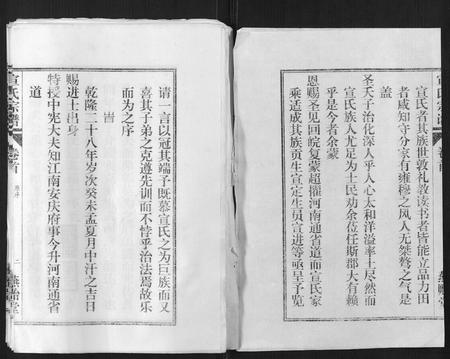 宣氏者其族世敦礼教读书者皆能立品力田
者咸知守分家有雍穆之风人无桀骜之气是
盖
圣天子治化深入乎人心太和洋溢率土尽然而
宣氏族人尤足为士民劝余位任斯郡大有赖
乎是今者余蒙
恩赐圣见回皖复蒙超擢河南通省道而宣氏家
乘适成其族贡生宣定生员宣进等亟呈予览
宣氏宗谱
卷首
请一言以冠其端予既慕宣氏之为巨族而又
喜其子弟之克遵先训而不悖乎治法焉故乐
而为之序
时
乾隆二十八年岁次癸未孟夏月中汗之吉日
赐进士出身
特授中宪大夫知江南安庆府事今升河南通省
道
宣氏宗谱
卷首
原序
二